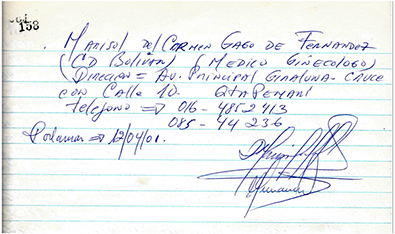 158
Marisol del Carmen Gago de Fernandez
(CD Bolivar) (Medico Ginecologo)
(Direccion = Av. Principal Guatuna - Cruce
con Calle 10. Qta Pemani
Telefono ⇒ 016 - 4852413
085 - 44 236
Porlamar ⇒ 12/04/01.